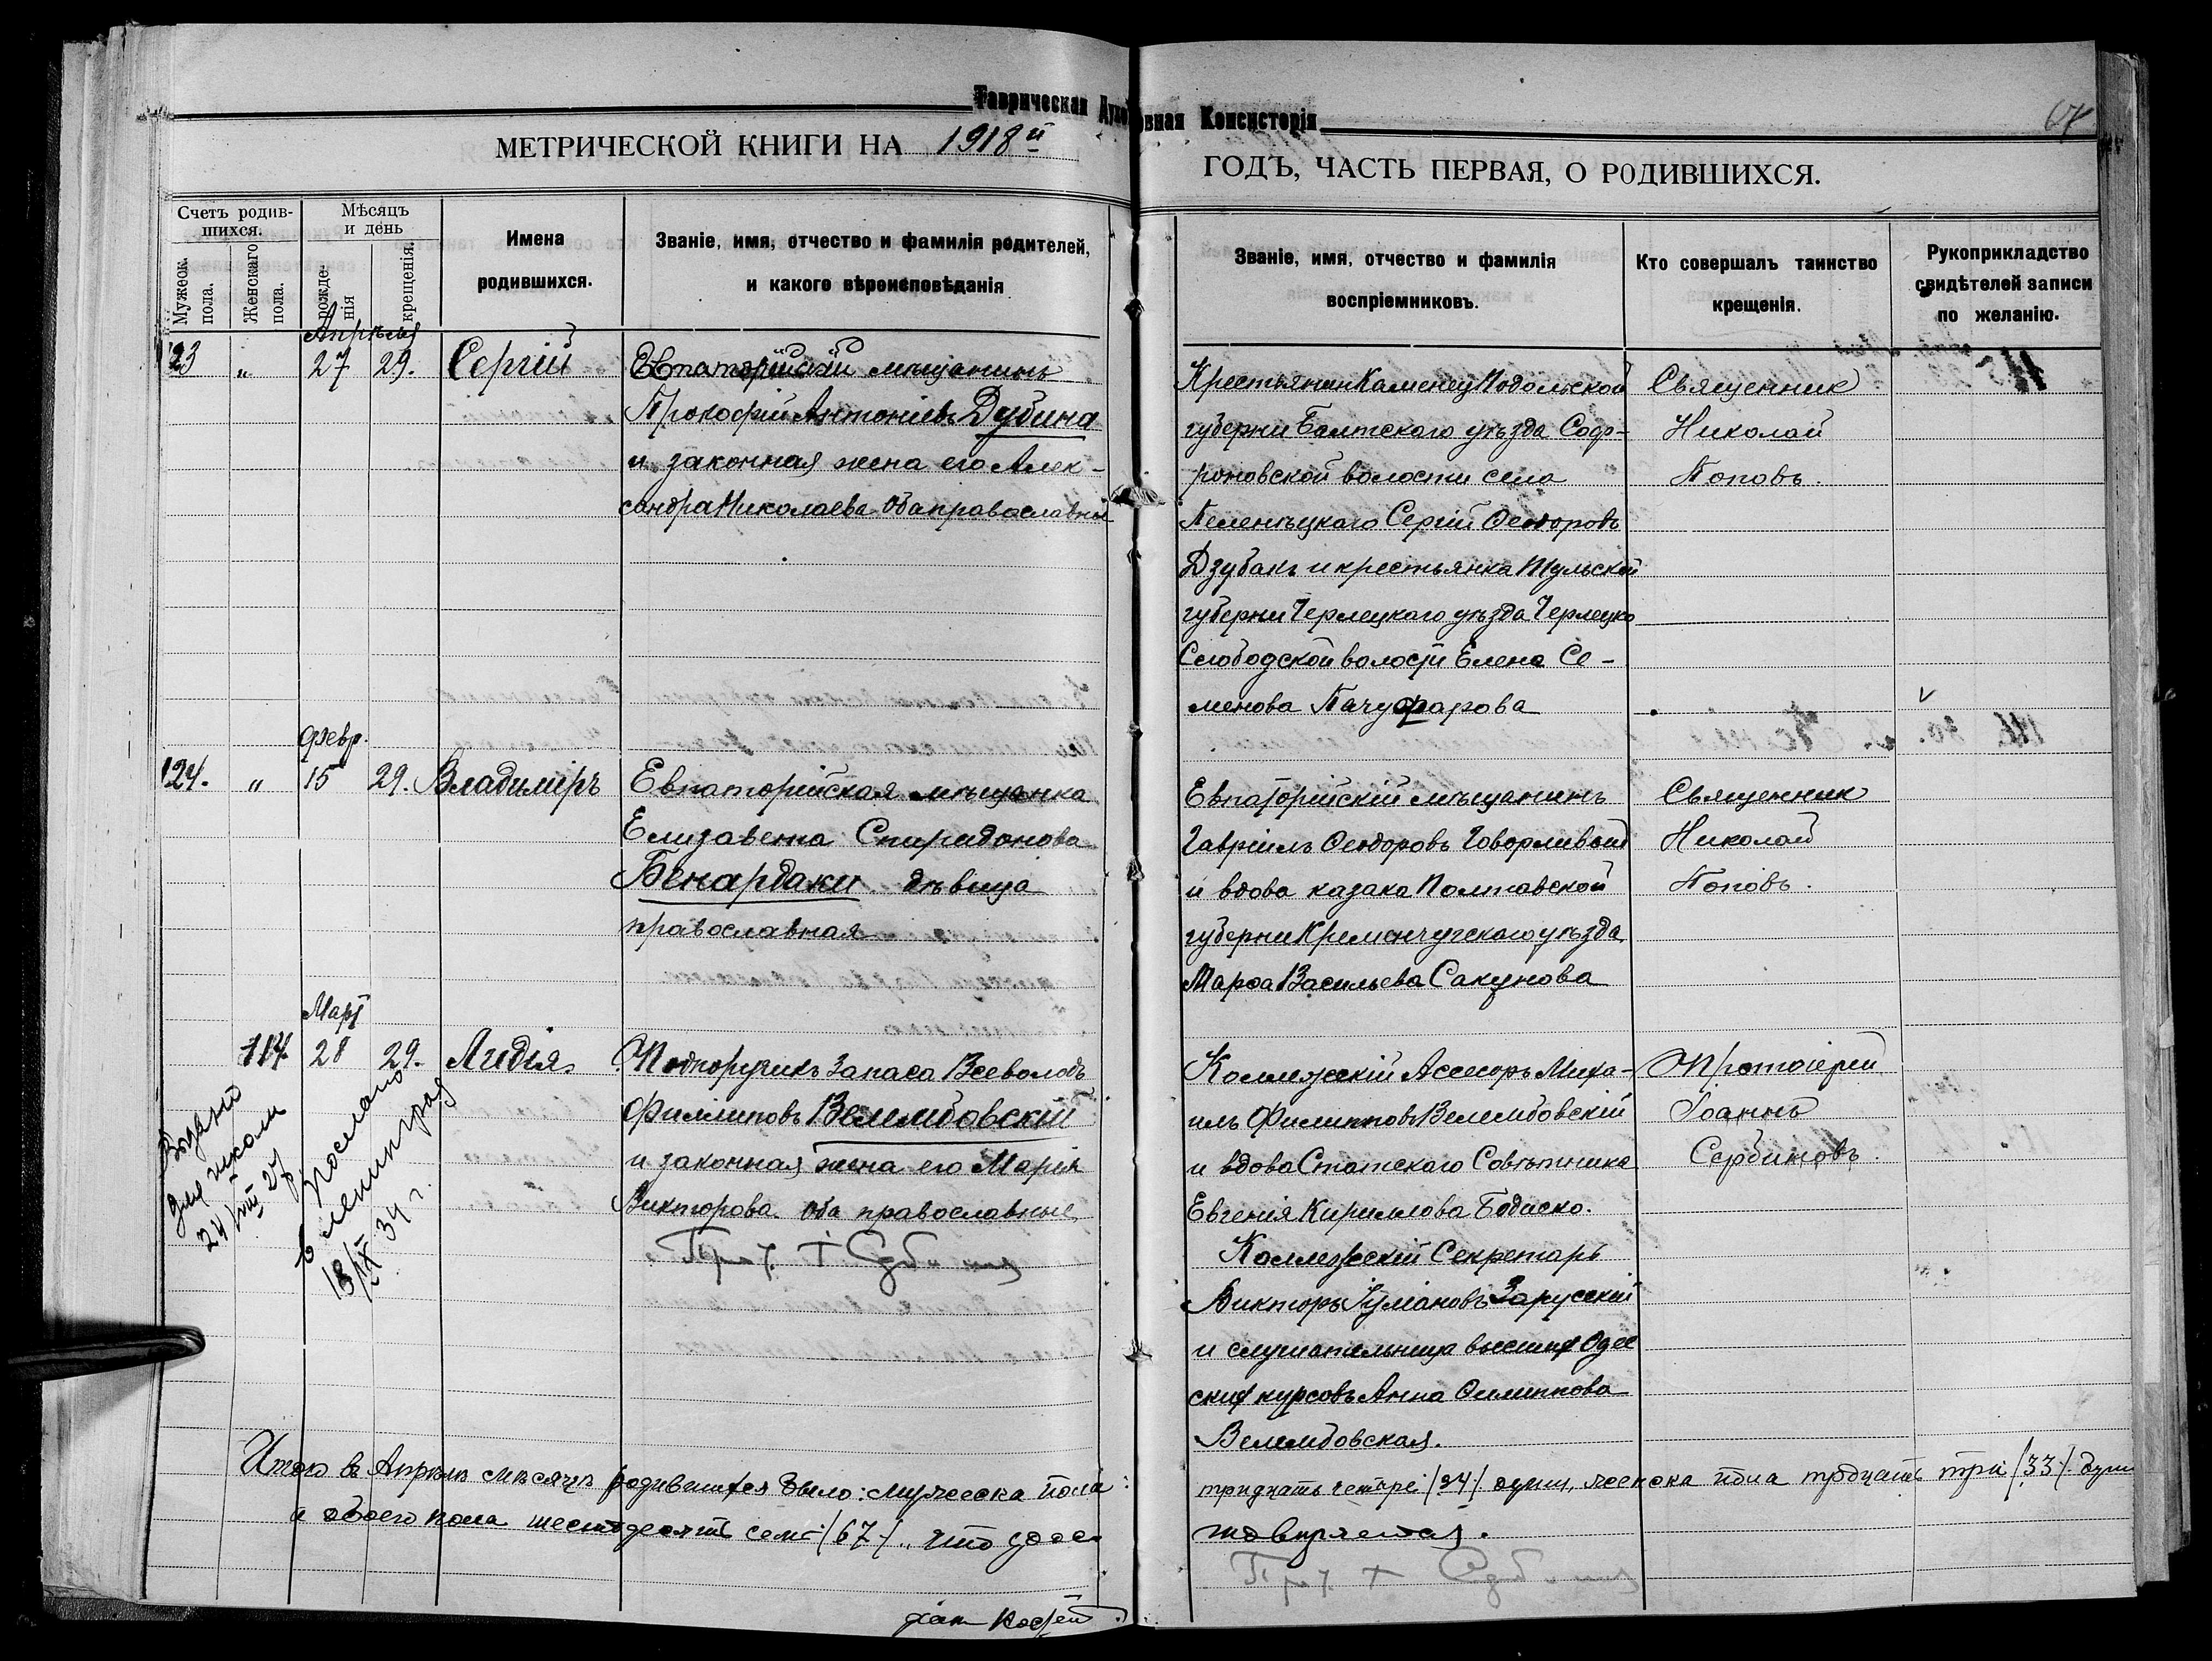 Таврическая Духовная Консисторія
67
МЕТРИЧЕСКОЙ КНИГИ НА 1918й
ГОДЪ, ЧАСТЬ ПЕРВАЯ, О РОДИВШИХСЯ.
Счетъ родив-
шихся.
Мужеск.
пола.
Женскаго
пола.
Мѣсяцъ
и день
рожде-
нія
крещенія.
Имена
родившихся.
Званіе, имя, отчество и фамилія родителей,
и какого вѣроисповѣданія
Званіе, имя, отчество и фамилія
воспріемниковъ.
Кто совершалъ таинство
крещенія.
Рукоприкладство
свидѣтелей записи
по желанію.
Апрѣля
123 „ 27 29. Сергій
Евпаторійскій мѣщанинъ
Прокофій Антоніевъ Дубина
и законная жена его Алек-
сандра Николаева. Оба православные
Крестьянин Каменец Подольской
губерни Балтского уѣзда Соф-
роновской волости села
Сергій Ѳеодоровъ
Дзубакъ и крестьянка Тульской
губерни Чернецкаго уѣзда Чернецко
Слободской волости Елена Се-
менова
Священник
Николай
Поповъ.
Февр.
124. „ 15 29. Владиміръ
Евпаторійская мѣщанка
Елизавета Спиридонова
Бенардаки дѣвица
православная
Евпаторійскій мѣщанинъ
Гавріилъ Ѳеодоровъ Говорливый
и вдова казака Полтавской
губерни Кременчугскаго уѣзда
Марѳа Васильева Сакунова
Священник
Николай
Поповъ.
Март
114. 28 29. Лидія.
Подпоручикъ запаса Всеволодъ
Филлиповъ Велембовскій
и законная жена его Марія
Викторова. Оба православные
Коллежскій Ассесоръ Миха-
илъ Филипповъ Велембовскій
и вдова Статскаго Совѣтника
Евгенія Кириллова Бодиско.
Коллежскій Секретарь
Викторъ Іуліановъ Зарускій
и слушательница высших Одес
ских курсовъ Анна Филиппова
Велембовская.
Протоіерей
Іоаннъ
Сербиновъ.
Выдано
для школы
24/VIII 27
Послано
в Ленинград
18/IX 34 г.
Итого въ Апрѣлѣ мѣсяцѣ родившихся было: мужеска пола:
тридцать четыре /34/ души, женска пола тридцать три /33/ души
и обоего пола шестьдесятъ семь /67/. что удос-
товѣряется.